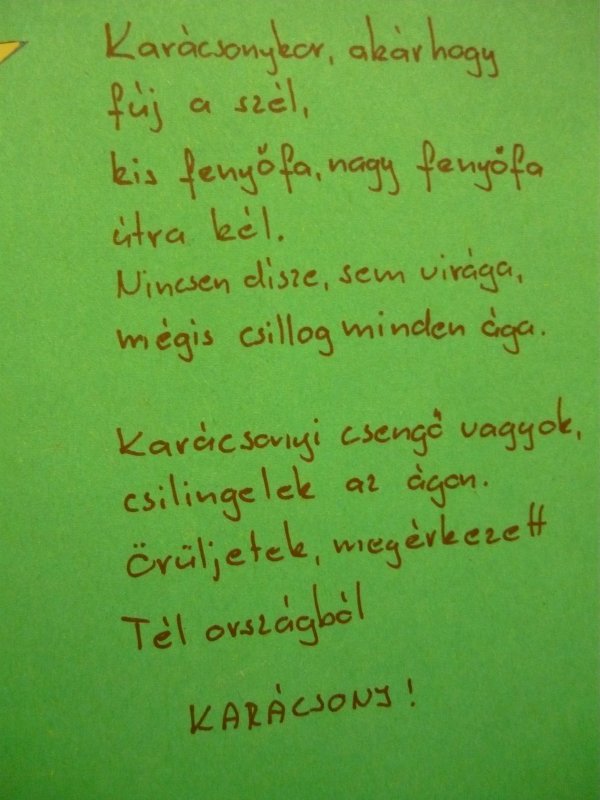 Karácsonykor, akárhogy
fúj a szél,
kis fenyőfa, nagy fenyőfa
útra kél.
Nincsen dísze, sem virága,
mégis csillog minden ága.
Karácsonyi csengő vagyok,
csilingelek az ágon.
Örüljetek, megérkezett
Tél országból
KARÁCSONY!